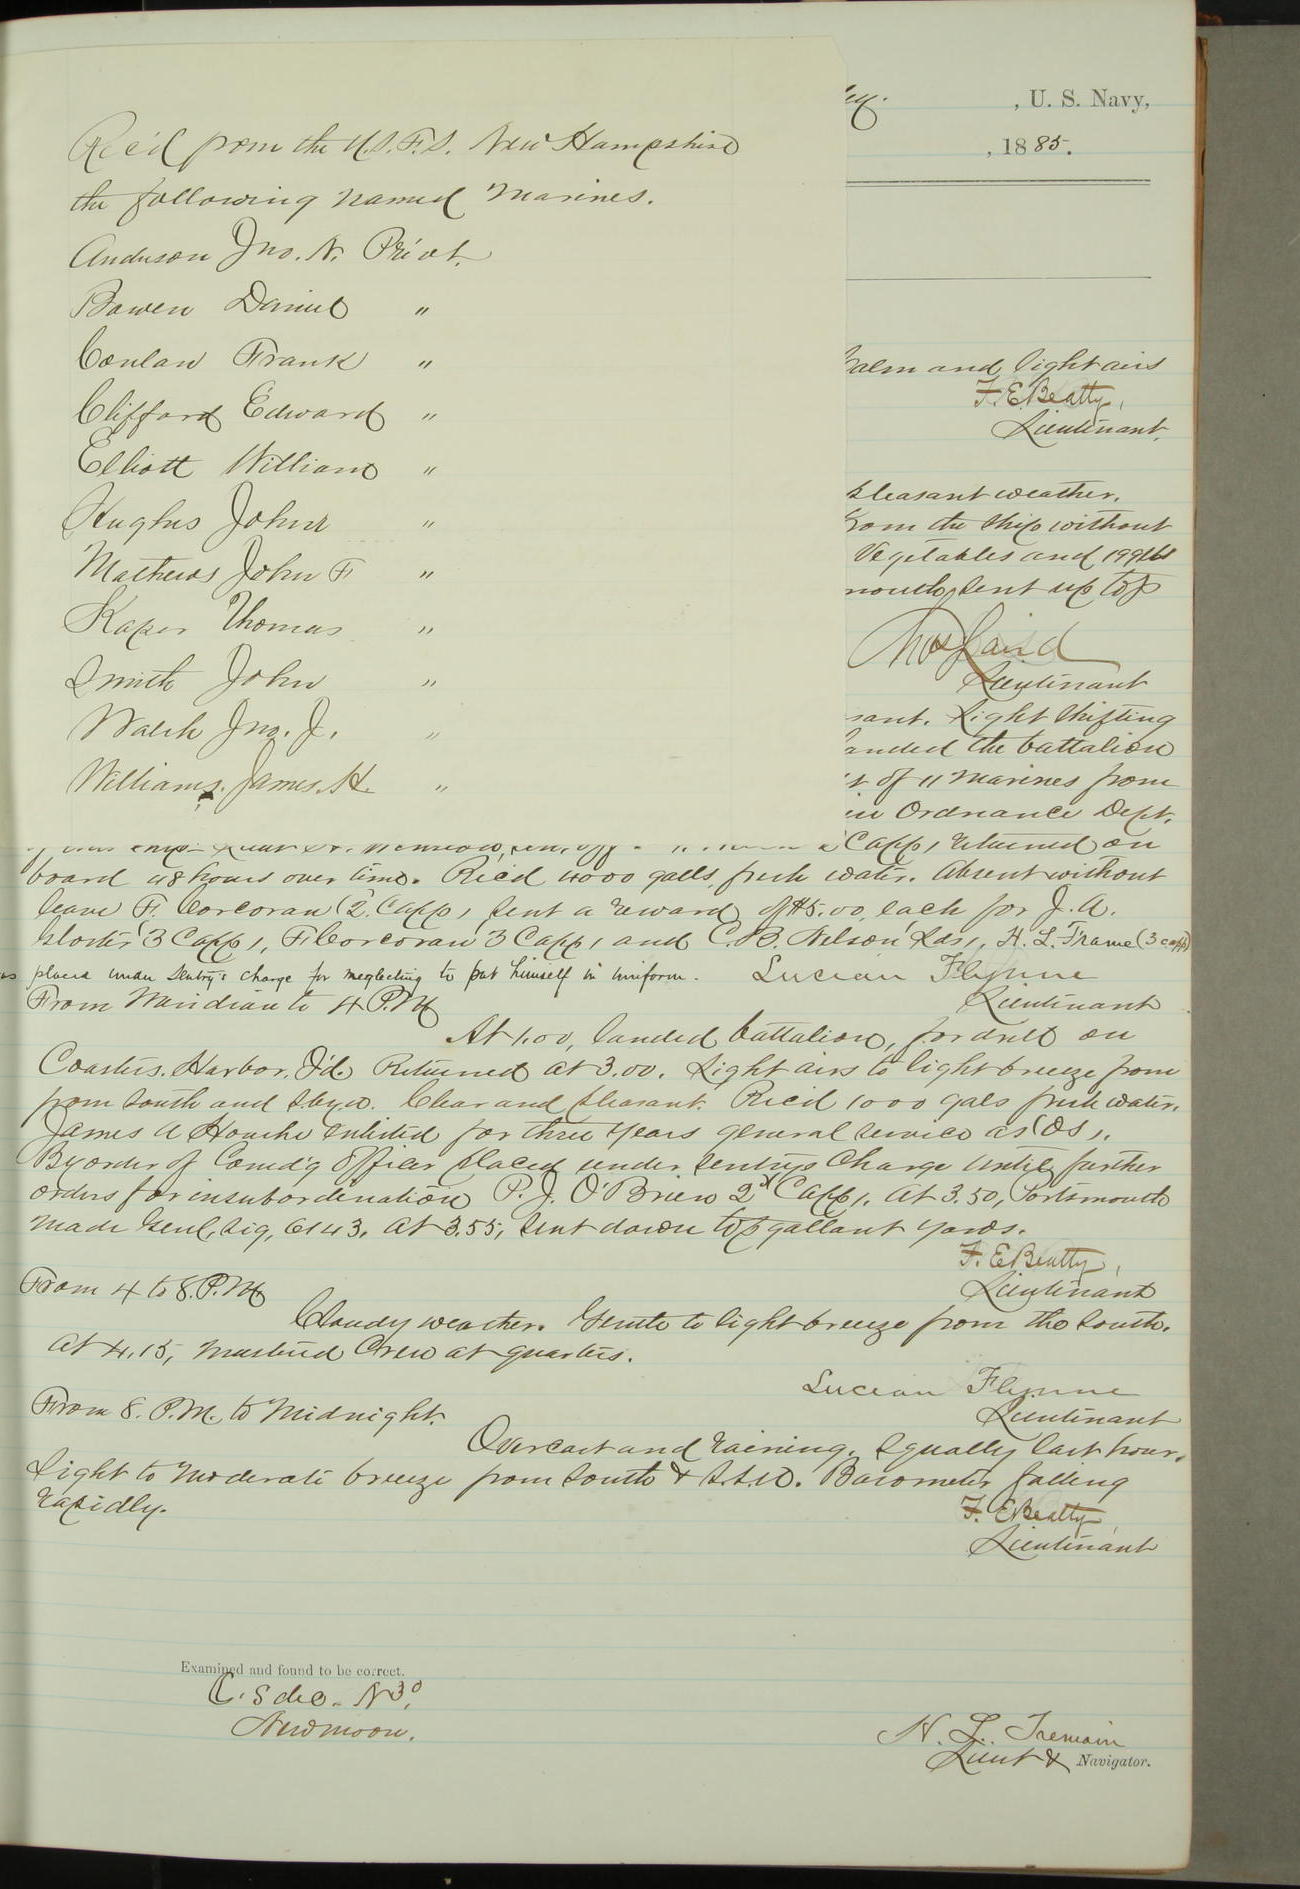 Rec'd from the U.S.F.S. New Hampshire
the following named Marines.
Anderson Jno. N. Privt.
Bowen Daniel "
Conlan Frank "
Clifford Edward "
Elliott William "
Hughes John "
Mathews John F "
Kaper Thomas "
Smith John "
Walsh Jno. J. "
Williams. James. H. "
, U. S. Navy,
, 1885.
Calm and light airs
F. E. Beatty,
Lieutenant.
pleasant weather.
from the ship without
Vegetables and 199 lbs
mouth, sent up top
Lieutenant
sant. Light shifting
landed the battalion
of 11 Marines from
in Ordnance Dept.
Capp, returned on
board 48 hours over time. Rec'd 4000 galls, fresh water. Absent without
leave F. Corcoran (2. Capp), Sent a reward of $5.00, each for J. A.
3 Capp), F. Corcoran 3 Capp, and C. B. Nelson Lds, H. L. Frame (3 capp)
placed under Sentry's charge for neglecting to put himself in uniform. Lucian Flynne
Lieutenant
From Meridian to 4 P.M.
At 1.00, landed battalion, for drill on
Coasters. Harbor. I'd. Returned at 3.00. Light airs to light breeze from
from South and S. by W. Clear and pleasant. Rec'd 1000 gals fresh water.
James A enlisted for three years general service as (OS),.
By order of Comd'g Officer placed under sentry's charge until further
orders for insubordination P. J. O'Brien 2d Capp). At 3.50, Portsmouth
made Genl, Sig, 6143. At 3.55, sent down top gallant yards.
F. E. Beatty,
Lieutenant
From 4 to 8. P.M.
Cloudy weather. Gentle to light breeze from the South.
At 4.15, mustered Crew at quarters.
Lucian Flynne
Lieutenant
From 8. P.M. to Midnight.
Overcast and raining. Squally last hour.
Light to moderate breeze from South & S.S.W. Barometer falling
rapidly.
F. E. Beatty,
Lieutenant
Examined and found to be correct.
New moon.
H. L. Tremain
Lieut & Navigator.